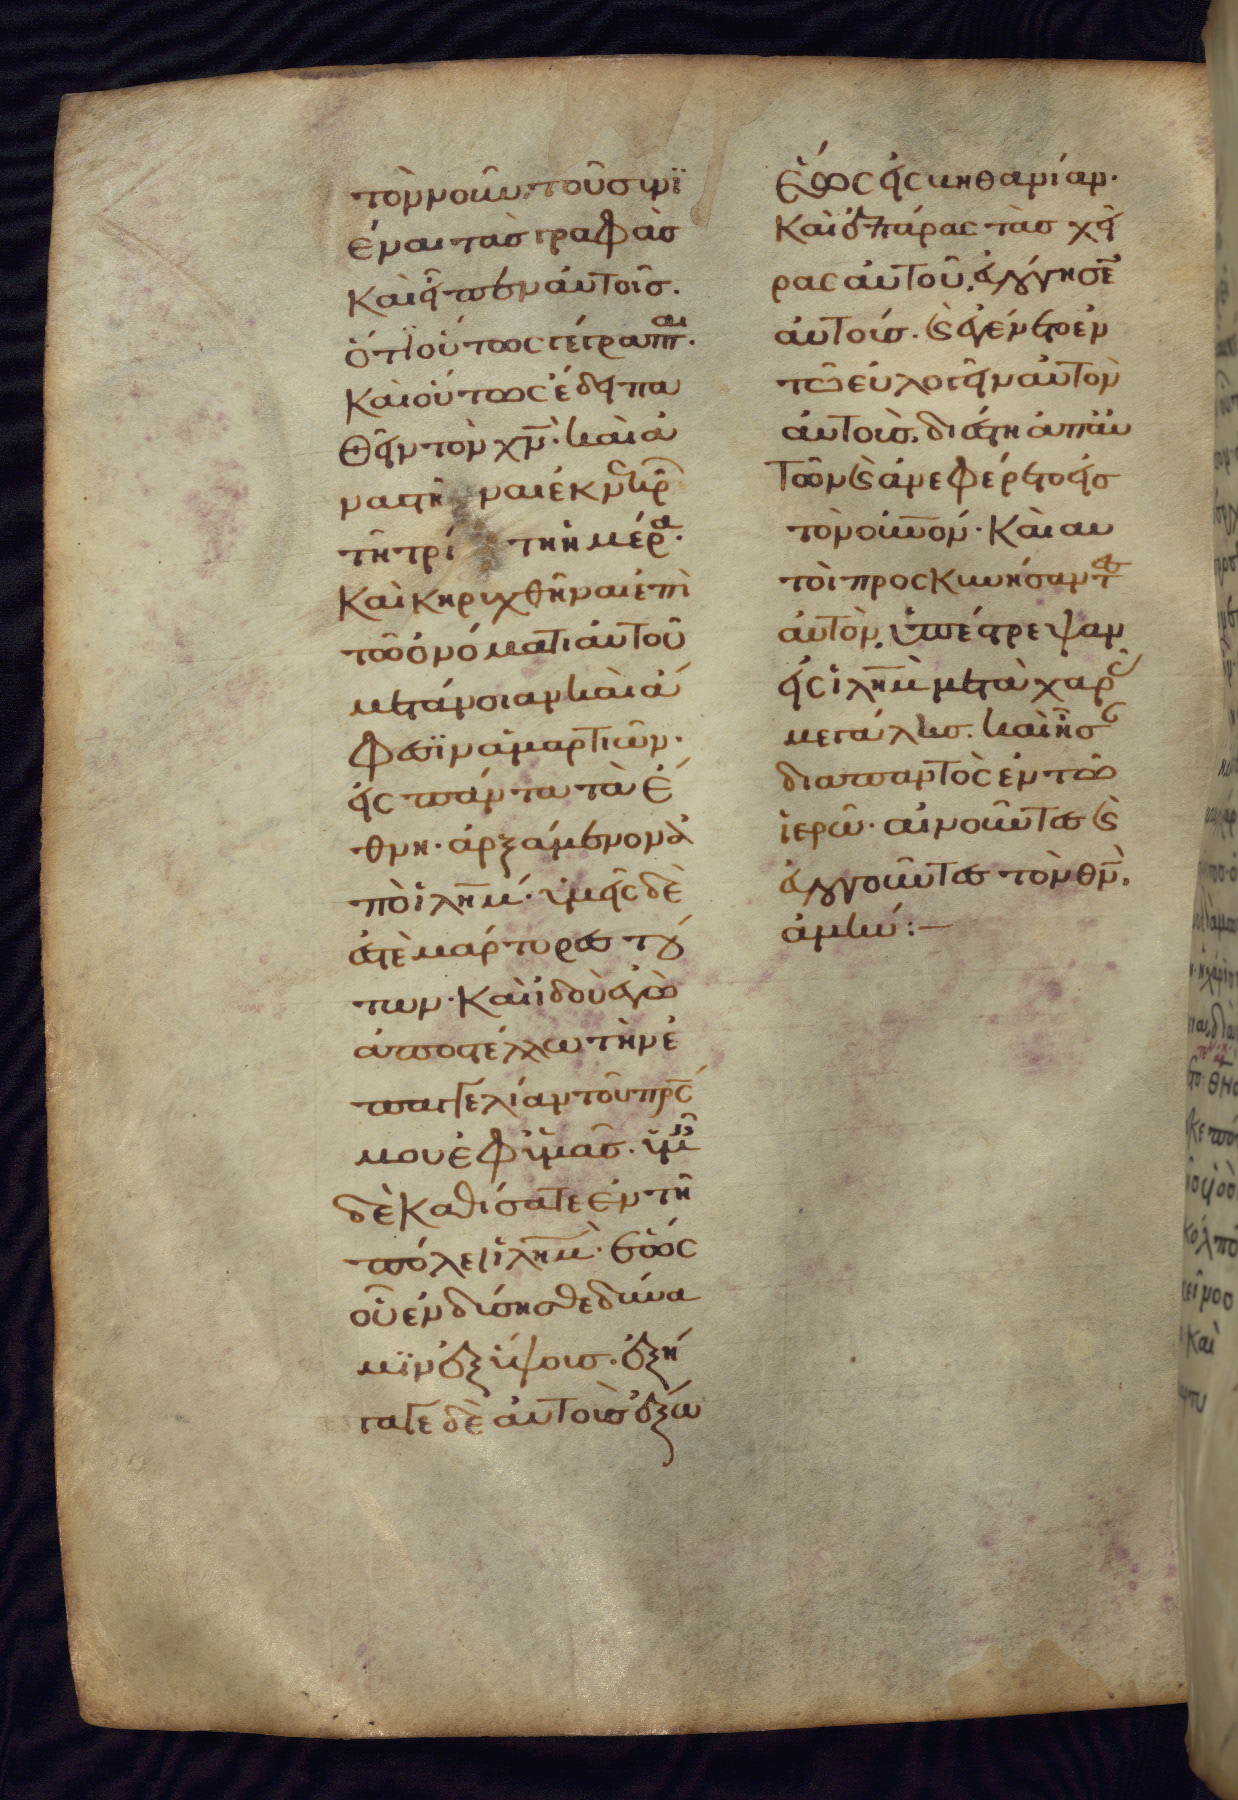 τὸν νοῦν· τοῦ συνϊ
έναι τὰσ γραφὰσ
καὶ εἶπεν αὐτοῖσ.
ὅτϊ οὕτως γέγραπται.
καὶ οὕτως ἔδει πα
θεῖν τὸν χν̅. καὶ ἀ
ναστῆναι ἐκ νεκρῶ
τῆ τρίτη ἡμέρα.
καὶ κηρυχθῆναι ἐπὶ
τῶ ὀνόματι αὐτοῦ
μετάνοιαν καὶ ἄ
φεσϊν ἁμαρτιῶν.
εἰς πάντα τὰ ἔ
θνη. ἀρξάμενον ἀ
πὸ ἱλη̅μ. ὑμεῖς δὲ
ἐστὲ μάρτυρεσ τού
των. καὶ ἰδοὺ ἐγὼ
ἀποστέλλω τὴν ἐ
παγγελίαν τοῦ πρς̅
μου ἐφ ὑμᾶσ. ὑμεῖς
δὲ καθίσατε ἐν τῆ
πόλει ἱλη̅μ. ἕως
οὗ ἐνδύσησθε δύνα
μϊν ἐξ ὕψουσ. ἐξή
γαγε δὲ αὐτοὺσ ἔξω
ἕως εἰς βηθανίαν.
καὶ ἐπάρας τὰσ χεῖ
ρας αὐτοῦ, εὐλόγησεν
αὐτούσ. καὶ ἐγένετο ἐν
τῶ εὐλογεῖν αὐτὸν
αὐτοὺσ. διέστη ἀπ αὐ
τῶν καὶ ἀνεφέρετο εἰσ
τὸν οὐνον. καὶ αυ
τοὶ προσκυνήσαντεσ
αὐτὸν, ὑπέστρεψαν
εἰς ἱλη̅μ μετὰ χαρᾶς
μεγάλησ. καὶ ἦσαν
διαπαντὸς ἐν τῶ
ἱερῶ. αἰνοῦντεσ καὶ
εὐλογοῦντεσ τὸν θν̅.
ἀμήν:—